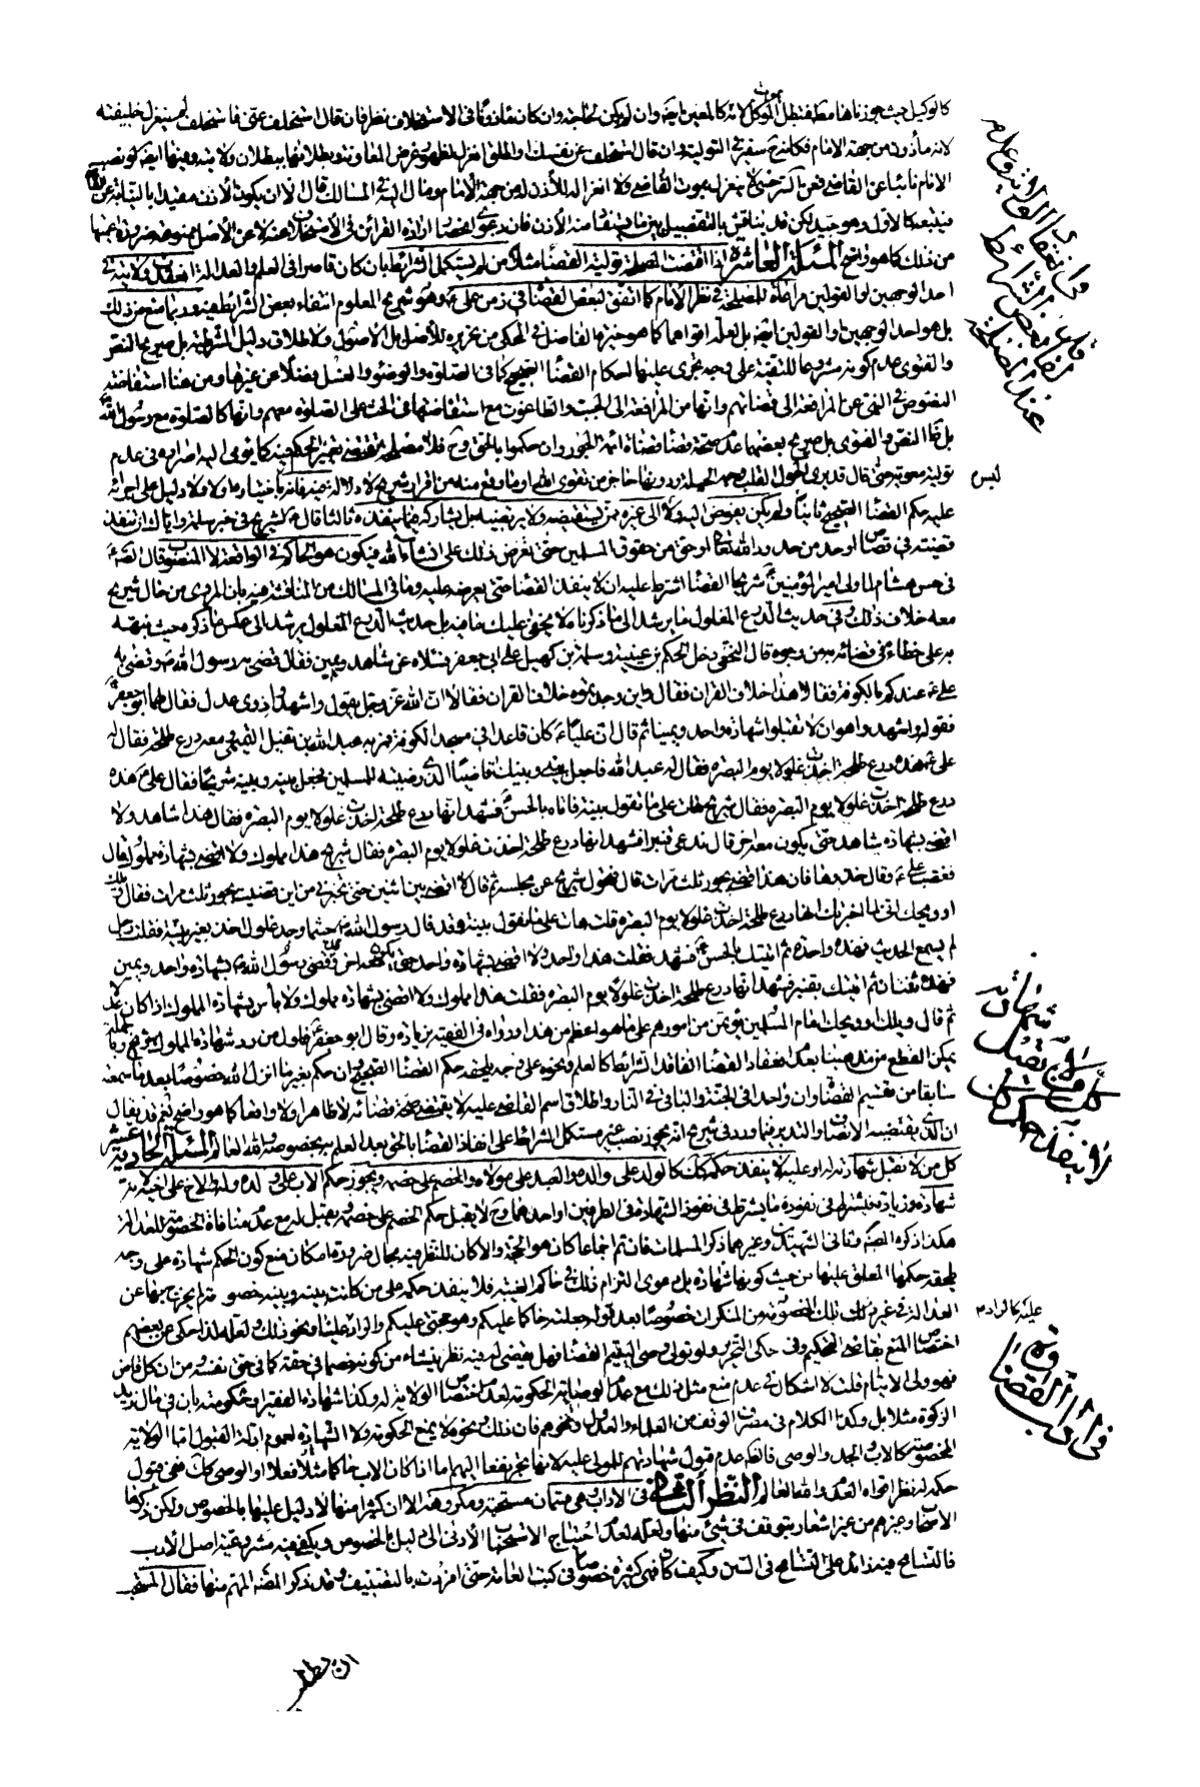 كالوكيل حيث جوزناها مط فتبطل بموت الموكل لانه كالمعين اتجه وان لم يكن لحاجة وان كان مأذونا في الاستخلاف نظر فان قال استخلف عنى فاستخلف لم ينعزل خليفته
لانه مأذون من جهة الامام فكان سفيرا في التولية وان قال استخلف عن نفسك او اطلق انعزل لظهور غرض المعاونة وبطلانها ببطلان ولايته وفيهما ايضا لو نصب
الامام نائبا عن القاضى فعن بالسرخسى لا ينعزل بموت القاضى ولا انعزاله للأذن له من جهة الأمام ومال اليه في المسالك قال الا ان يكون الأذن مقيدا بالنيابة عنه
فيتبعه كالاول وهو جيد لكن قد يناقش بالتفصيل بين ما يستفاد منه الأذن فان دعوى اقتضاء ارادة القرائن في الأستخلاف عنه لا عن الأصل ممنوعة ضرورة اعميتها
من ذلك كما هو واضح المسئلة العاشرة اذا اقتضت المصلحة تولية القضاء مثلا من لم يستكمل الشرائط بان كان قاصرا في العلم والعدالة انعقدت ولايته في
احد الوجهين او القولين مراعاة للمصلحة في نظر الامام كما اتفق لبعض القضاة في زمن على ع وهو شريح المعلوم انتفاء بعض الشرائط فيه وربما منع من ذلك
بل هو احد الوجهين او القولين ايضا بل لعله اقواهما كما هو خيرة الفاضل في المحكى من تحريره للأصل بل الاصول ولاطلاق دليل الشرطية بل صريح النص
والفتوى عدم كونه مشروعا للتقية على وجه يجرى عليها احكام القضاء الصحيح كما في الصلوة والوضوء والغسل فضلا عن غيرها ومن هنا استفاضت
النصوص في النهى عن المرافعة الى قضاتهم وانها من المرافعة الى الجبت والطاغوت مع استفاضتها في الحث على الصلوة معهم وانها كالصلوة مع رسول الله
بل ظ النص والفتوى بل صريح بعضها عدم صحة قضاء قضاة ائمة الجور وان حكموا بالحق وح فلا مصلحة تقتضى تغيير الحكم
توليته معوية حتى قال قد يرى الحول القلب وجه الحيلة ودونها حاجز من تقوى الله وما وقع منه من اقرار شريح لا دلالة فيه فانه باختيارها ولا دليل على اجرائه
ليس
عليه حكم القضاء الصحيح ثانيا ولم يكن يفوض اليه ولا الى غيره ممن يستقضيه ولا يرتضيه بل يشاركه فيما ينفذه ثالثا قال ع لشريح في خبر سلمة واياك ان تنفذ
قضية في قصاص او حد من حدود الله تعالى او حق من حقوق المسلمين حتى تعرض ذلك على انشاء الله فيكون هو الحاكم في الواقعة لا المنصوب وقال الصادق ع
في حسن هشام لما ولى امير المؤمنين ع شريحا القضاء اشترط عليه ان لا ينفذ القضاء حتى يعرضه عليه وما في المسالك من المناقشة فيه بان المروى من حال شريح
معه خلاف ذلك وفي حديث الدرع الغلول ما يرشد الى ما ذكرنا لا يخفى عليك ما فيه بل حديث الدرع الغلول يرشد الى عكس ما ذكره حيث نبهه
به على خطائه في قضائه به من وجوه قال النخعى دخل الحكم بن عيينة وسلمة بن كهيل على ابى جعفر فسئلاه عن شاهد ويمين فقال قضى به رسول الله ص وقضى به
على ع عندكم بالكوفة فقالا هذا خلاف القران فقال واين وجدتموه خلاف القران فقالا ان الله عز وجل يقول واشهدوا ذوى عدل فقال لهما ابو جعفر
فقوله واشهدوا هو ان لا تقبلوا شهادة واحد ويمينا ثم قال ان عليا ع كان قاعدا في مسجد الكوفة فمر به عبد الله بن نفيل التيمى ومعه درع طلحة فقال له
على ع هذه درع طلحة اخذت غلولا يوم البصرة فقال له عبد الله فاجعل بينى وبينك قاضيا الذى رضيته للمسلمين فجعل بينه وبينه شريحا فقال على ع هذه
درع طلحة اخذت غلولا يوم البصرة فقال شريح هات على ما تقول بينة فاتاه بالحسن ع فشهد انها درع طلحة اخذت غلولا يوم البصرة فقال هذا شاهد ولا
اقضى بشهادة شاهد حتى يكون معه اخر قال فدعى قنبرا فشهد انها درع طلحة اخذت غلولا يوم البصرة فقال شريح هذا مملوك ولا اقضى بشهادة مملوك قال
فغضب على ع وقال خذوها فان هذا قضى بجور ثلث مرات قال فتحول شريح عن مجلسه ثم قال لا اقضى بين اثنين حتى تخبرنى من اين قضيت بجور ثلث مرات فقال ويلك
او ويحك انى لما اخبرتك انها درع طلحة اخذت غلولا يوم البصرة قلت هات على ما تقول بينة وقد قال رسول الله ص حيثما وجد غلول اخذ بغير بينة فقلت رجل
لم يسمع الحديث فهذه واحدة ثم اتيتك بالحسن ع فشهد فقلت هذا واحد ولا اقضى بشهادة واحد حتى يكون معه اخر وقد قضى رسول الله ص بشهادة واحد ويمين
فهذه ثنتان ثم اتيتك بقنبر فشهد انها درع طلحة اخذت غلولا يوم البصرة فقلت هذا مملوك ولا اقضى بشهادة مملوك ولا بأس بشهادة المملوك اذا كان عدلا
ثم قال ويلك او ويحك امام المسلمين يؤتمن من امورهم على ما هو اعظم من هذا ورواه في الفقيه بزيادة وقال ابو جعفر ع فاول من رد شهادة المملوك
يمكن القطع من مذهبنا بعدم انعقاد القضاء الفاقد الشرائط كالعلم ونحوه على وجه يلحقه حكم القضاء الصحيح وان حكم بغير ما انزل الله خصوصا بعد ما سمعته
سابقا من تقسيم القضاة وان واحدا في الجنة والباقى في النار واطلاق اسم القاضى عليه لا يقتضى صحة قضائه لا ظاهرا ولا واقعا كما هو واضح نعم قد يقال
ان الذى يقتضيه الانصاف والتدبر فيما ورد في شريح انه يجوز نصب غير مستكمل الشرائط على انفاذ القضاء بالحق بعد العلم به بخصوصه والله العالم المسئلة الحادية عشر
كل من لا تقبل شهادته له او عليه لا ينفذ حكمه كك كالولد على والده والعبد على مولاه والخصم على خصمه ويجوز حكم الاب على ولده وله والاخ على اخيه وله
شهادة وزيادة فيشترط في نفوذه ما يشترط في نفوذ الشهادة في الطرفين او احدهما وح لا يقبل حكم الخصم على خصمه ويقبل له مع عدم منافاة الخصومة للعدالة
هكذا ذكره المص وفى التهذيب وغيرهما ذكر المسلمات فان تم اجماعا كان هو الحجة والا كان للنظر فيه مجال ضرورة امكان منع كون الحكم شهادة على وجه
يلحقه حكمها المعلق عليها من حيث كونها شهادة بل دعوى التزام ذلك في حاكم الغيبة فلا ينفذ حكمه على من كانت بينه وبينه خصومة لم يخرج بها عن
العدالة في غير تلك الخصومة من المنكرات خصوصا بعد قوله جعلته حاكما عليكم وهو حجتى عليكم والراد علينا ونحو ذلك ولعله لذا حكى عن بعضهم
عليه كالراد م
اختصاص المنع بقاضى التحكيم وفى حكى التحرير ولو تولى وصى اليتيم القضاء فهل يقضى له فيه نظر ينشاء من كونه خصما في حقه كما في حق نفسه ومن ان كل قاض
فهو ولى الايتام قلت لا اشكال في عدم منع مثل ذلك مع عدم الوصاية الحكومة لعدم اختصاص الولاية له وكذا شهادة الفقير او حكومته بان في مال زيد
الزكوة مثلا بل وكذا الكلام في مصرف الوقف من العلماء والعدول ونحوهم فان ذلك ونحوه لا يمنع الحكومة ولا الشهادة لعموم ادلة القبول انما الولاية
المخصوصة كالاب والجد والوصى فالمتجه عدم قبول شهادتهم للمولى عليه لانها تجر نفعا اليهم اما اذا كان الاب حاكما مثلا فعلا او الوصى كك ففى قبول
حكمه له نظر اقواه العدم والله العالم النظر الثانى في الاداب وهى قسمان مستحبة ومكروهة الا ان كثيرا منها لا دليل عليها بالخصوص ولكن ذكرها
الاصحاب وغيرهم من غير اشعار بتوقف في شئ منها ولعله لعدم احتياج الاستحباب الأدبى الى دليل بالخصوص ويكفى فيه مشروعية اصل الأدب
فالتسامح فيه زائد على التسامح في السنن وكيف كان فهى كثيرة خصوصا في كتب العامة حتى افردت بالتصنيف وقد ذكر المص المهم منها فقال المستحب
فى انعقاد
القضاء بعض الشرائط
عند المصلحة
كل من لا تقبل شهادته
لا ينفذ حكمه
فى آداب القضاء